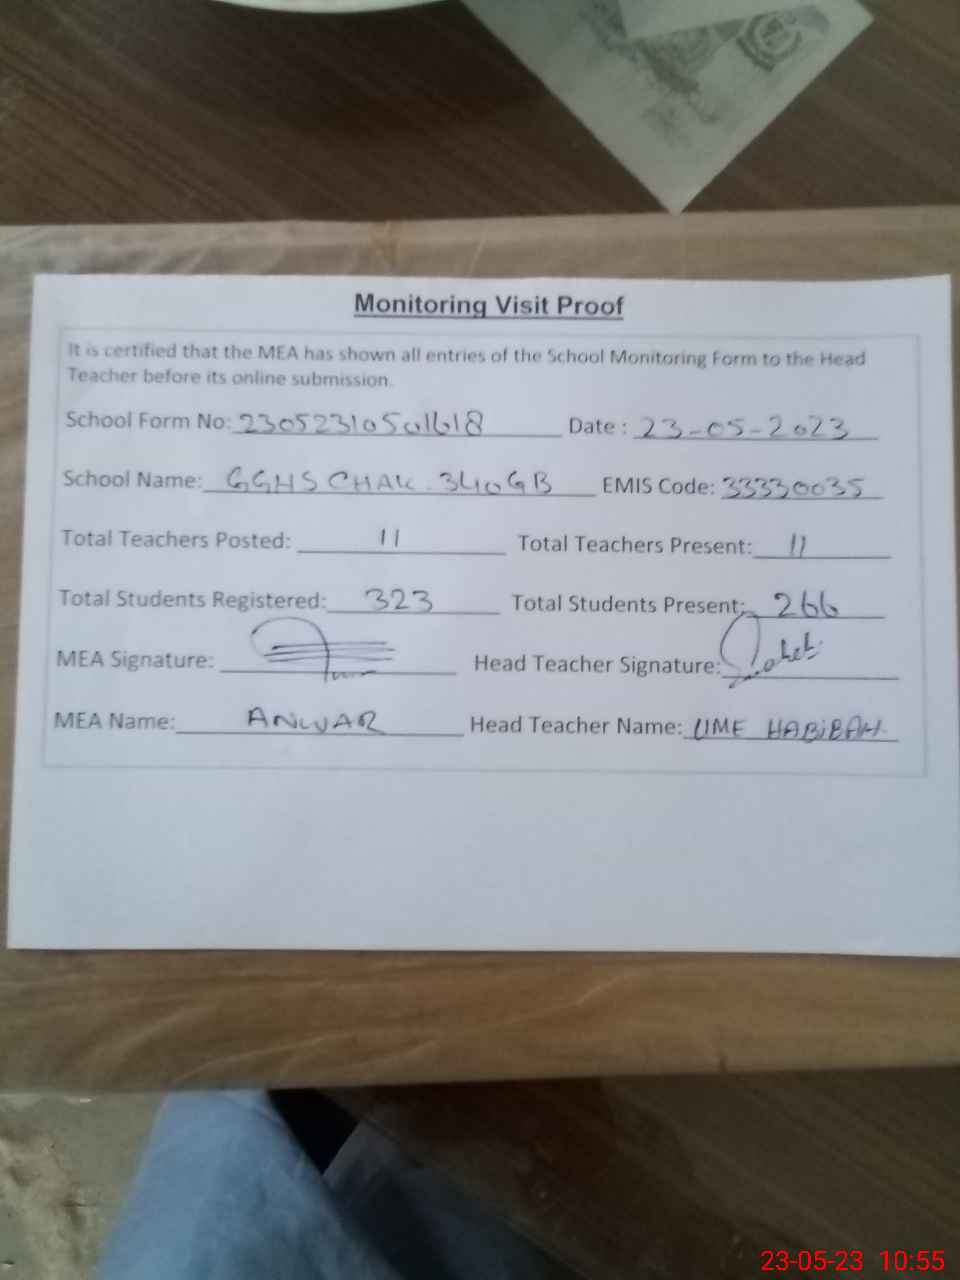 Monitoring Visit Proof
It is certified that the MEA has shown all entries of the School Monitoring Form to the Head
Teacher before its online submission.
School Form No: 23052310501618 Date : 23-05-2023
School Name: GGHS CHAK. 340GB EMIS Code: 33330035
Total Teachers Posted: 11 Total Teachers Present: 11
Total Students Registered: 323 Total Students Present: 266
MEA Signature: Head Teacher Signature:
MEA Name: ANWAR Head Teacher Name: UME HABIBAH.
23-05-23 10:55